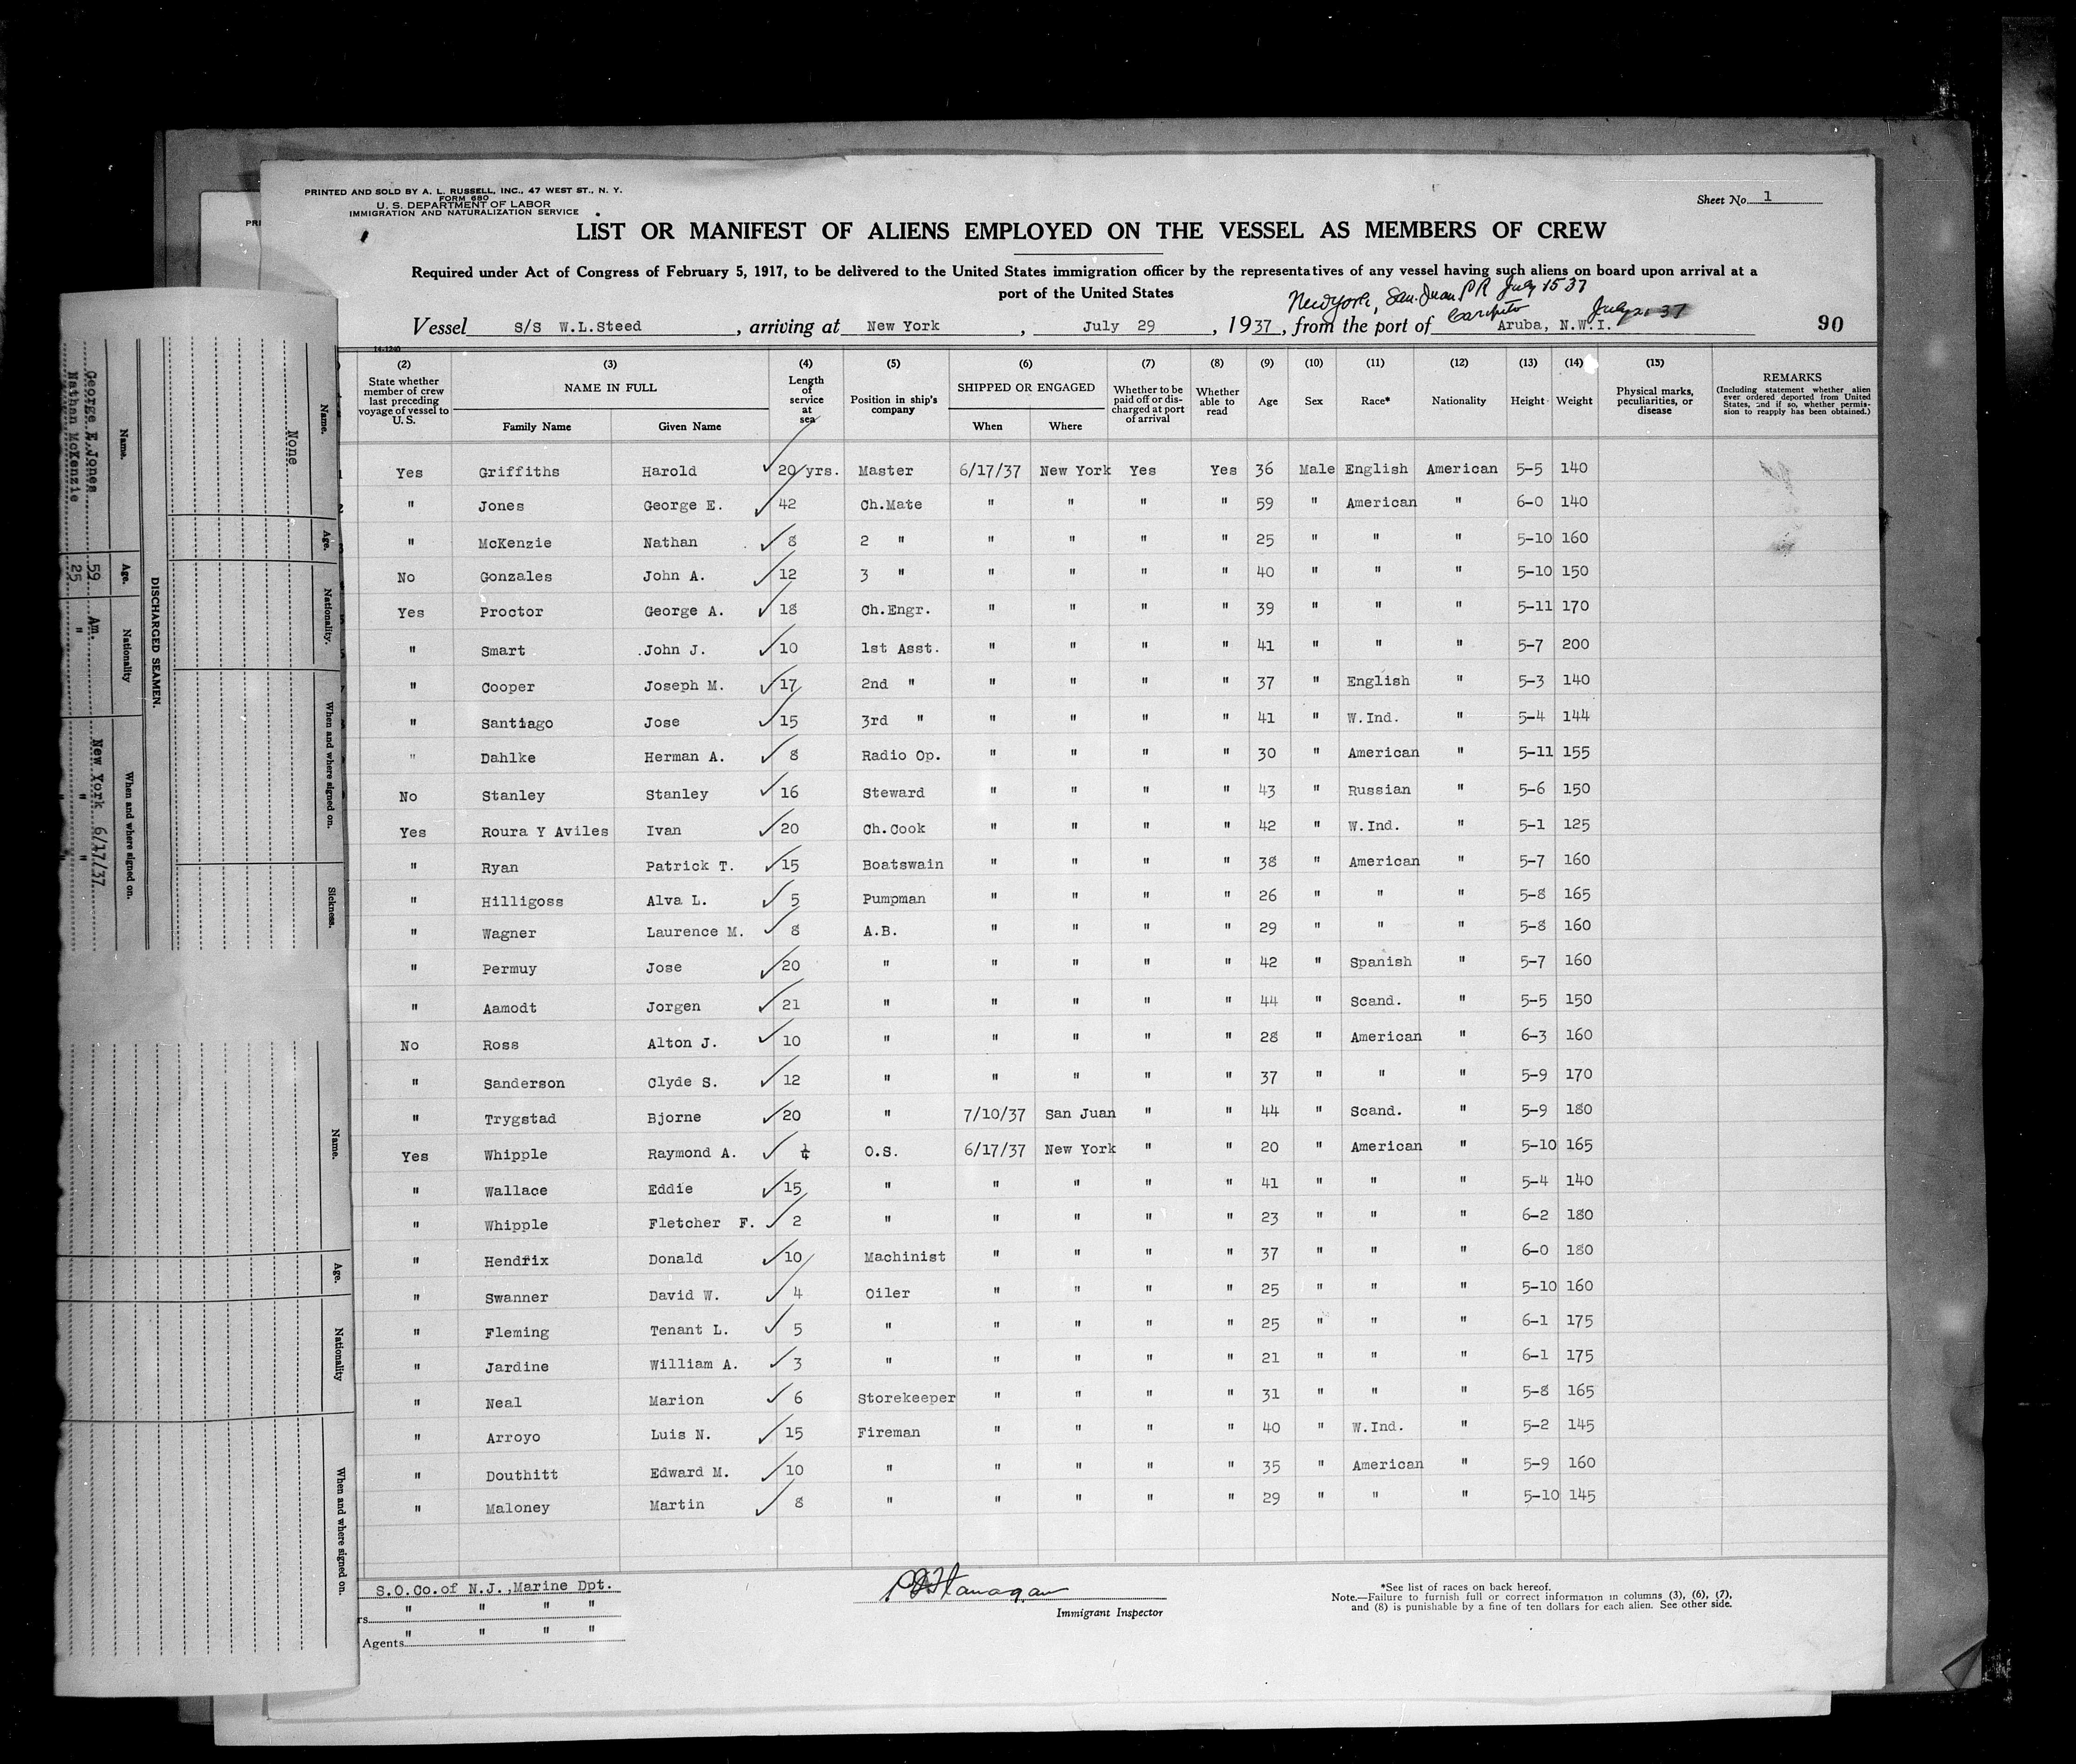 PRINTED AND SOLD BY A. L. RUSSELL, INC., 47 WEST ST., N. Y.
FORM 680
U. S. DEPARTMENT OF LABOR
IMMIGRATION AND NATURALIZATION SERVICE
Sheet No. 1
LIST OR MANIFEST OF ALIENS EMPLOYED ON THE VESSEL AS MEMBERS OF CREW
Required under Act of Congress of February 5, 1917, to be delivered to the United States immigration officer by the representatives of any vessel having such aliens on board upon arrival at a
port of the United States
New York, San Juan PR July 15 37
Caripito July 21 37
Vessel S/S W.L.Steed, arriving at New York, July 29, 1937, from the port of Aruba, N.W.I.
90
(2) (3) (4) (5) (6) (7) (8) (9) (10) (11) (12) (13) (14) (15)
State whether member of crew last preceding voyage of vessel to U. S. NAME IN FULL Family Name Given Name Length of service at sea Position in ship's company SHIPPED OR ENGAGED When Where Whether to be paid off or discharged at port of arrival Whether able to read Age Sex Race* Nationality Height Weight Physical marks, peculiarities, or disease REMARKS (Including statement whether alien ever ordered deported from United States, and if so, whether permission to reapply has been obtained.)
1 Yes Griffiths Harold 20 yrs. Master 6/17/37 New York Yes Yes 36 Male English American 5-5 140
" Jones George E. 42 Ch.Mate " " " " 59 " American " 6-0 140
" McKenzie Nathan 8 2 " " " " " 25 " " " 5-10 160
No Gonzales John A. 12 3 " " " " " 40 " " " 5-10 150
Yes Proctor George A. 18 Ch.Engr. " " " " 39 " " " 5-11 170
" Smart John J. 10 1st Asst. " " " " 41 " " " 5-7 200
" Cooper Joseph M. 17 2nd " " " " " 37 " English " 5-3 140
" Santiago Jose 15 3rd " " " " " 41 " W.Ind. " 5-4 144
" Dahlke Herman A. 8 Radio Op. " " " " 30 " American " 5-11 155
No Stanley Stanley 16 Steward " " " " 43 " Russian " 5-6 150
Yes Roura Y Aviles Ivan 20 Ch.Cook " " " " 42 " W.Ind. " 5-1 125
" Ryan Patrick T. 15 Boatswain " " " " 38 " American " 5-7 160
" Hilligoss Alva L. 5 Pumpman " " " " 26 " " " 5-8 165
" Wagner Laurence M. 8 A.B. " " " " 29 " " " 5-8 160
" Permuy Jose 20 " " " " " 42 " Spanish " 5-7 160
" Aamodt Jorgen 21 " " " " " 44 " Scand. " 5-5 150
No Ross Alton J. 10 " " " " " 28 " American " 6-3 160
" Sanderson Clyde S. 12 " " " " " 37 " " " 5-9 170
" Trygstad Bjorne 20 " 7/10/37 San Juan " " 44 " Scand. " 5-9 180
Yes Whipple Raymond A. ¼ O.S. 6/17/37 New York " " 20 " American " 5-10 165
" Wallace Eddie 15 " " " " " 41 " " " 5-4 140
" Whipple Fletcher F. 2 " " " " " 23 " " " 6-2 180
" Hendrix Donald 10 Machinist " " " " 37 " " " 6-0 180
" Swanner David W. 4 Oiler " " " " 25 " " " 5-10 160
" Fleming Tenant L. 5 " " " " " 25 " " " 6-1 175
" Jardine William A. 3 " " " " " 21 " " " 6-1 175
" Neal Marion 6 Storekeeper " " " " 31 " " " 5-8 165
" Arroyo Luis N. 15 Fireman " " " " 40 " W.Ind. " 5-2 145
" Douthitt Edward M. 10 " " " " " 35 " American " 5-9 160
" Maloney Martin 8 " " " " " 29 " " " 5-10 145
S.O.Co.of N.J.,Marine Dpt.
" " " "
Agents " " " "
Flanagan
Immigrant Inspector
*See list of races on back hereof.
Note.—Failure to furnish full or correct information in columns (3), (6), (7),
and (8) is punishable by a fine of ten dollars for each alien. See other side.
Name. Age. Nationality. When and where signed on. Sickness.
None
DISCHARGED SEAMEN.
Name. Age. Nationality When and where signed on.
George E.Jones 59 Am. New York 6/17/37
Nathan McKenzie 25 " " "
Name. Age. Nationality When and where signed on.